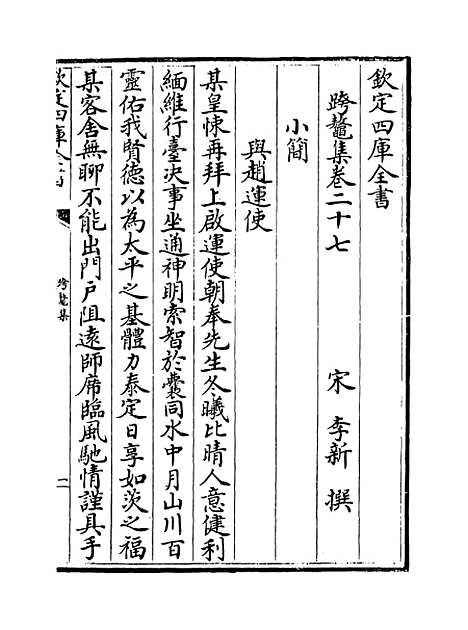 欽定四庫全書
跨鼇集卷二十七
宋 李新 撰
小簡
與趙運使
某皇悚再拜上啟運使朝奉先生冬曦比晴人意健利
緬維行臺決事坐通神明索智於囊同水中月山川百
靈佑我賢德以為太平之基體力泰定日享如茨之福
某客舍無聊不能出門戶阻遠師席臨風馳情謹具手
欽定四庫全書
跨鼇集
二